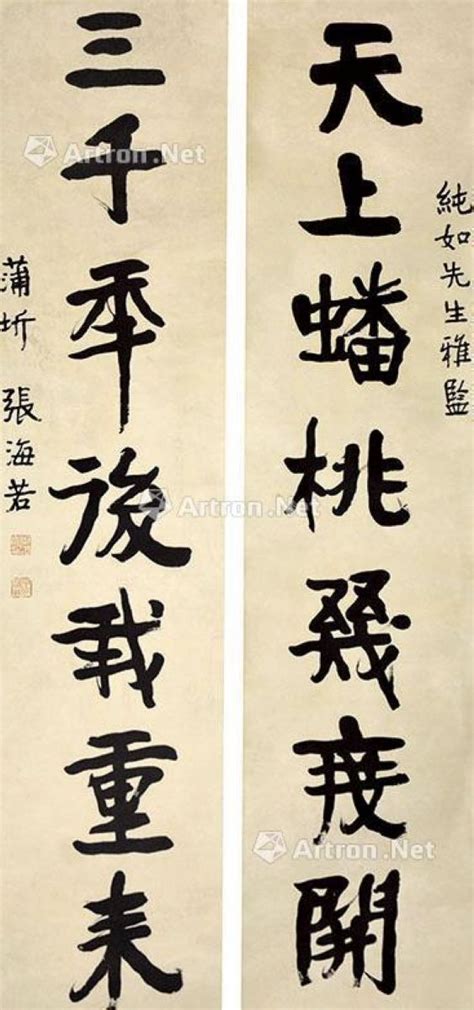 純如先生雅監
天上蟠桃幾度開
三千年後我重来
蒲圻 張海若
Artron.Net
Artron.Net
Artron.Net
Artron.Net
Artron.Net